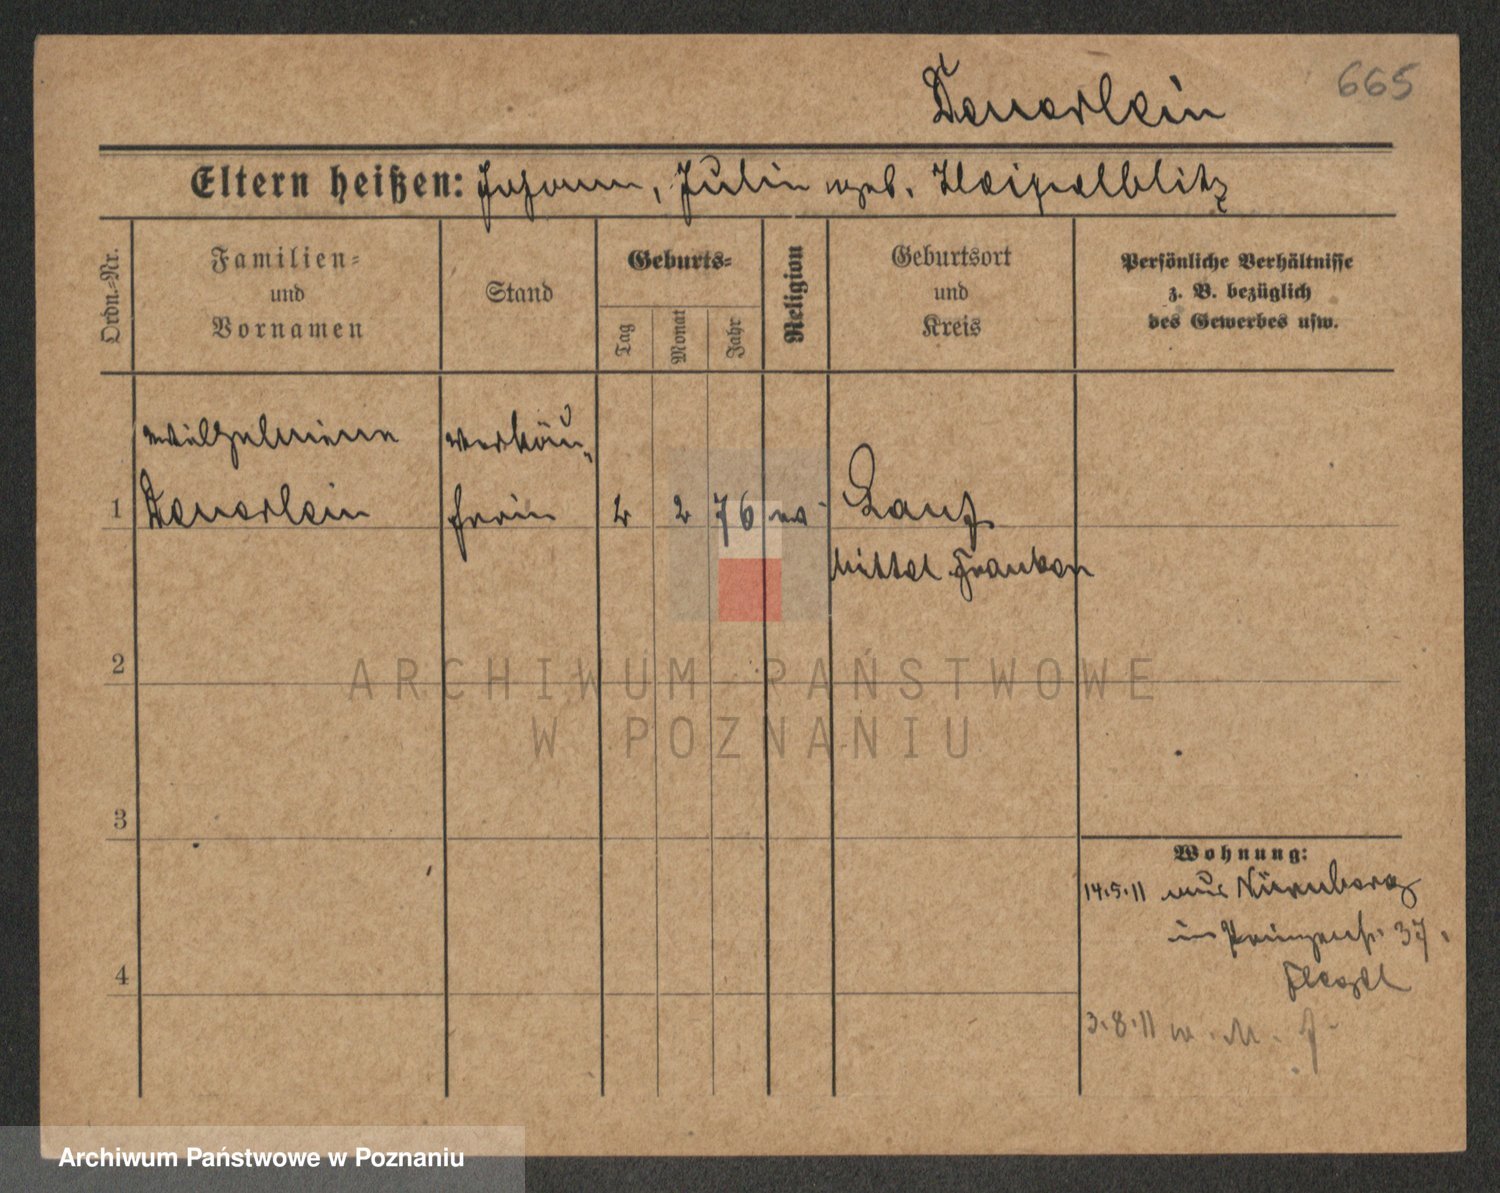 665
Deuerlein
Eltern heißen: Johann, Julie geb.
Ordn.-Nr.
Familien-
und
Vornamen
Stand
Geburts-
Tag
Monat
Jahr
Religion
Geburtsort
und
Kreis
Persönliche Verhältnisse
z. B. bezüglich
des Gewerbes usw.
Wilhelmine
Verkäu-
1 Deuerlein
ferin
2 2 76 ev.
Lauf
Mittel Franken
2
ARCHIWUM PAŃSTWOWE
W POZNANIU
3
Wohnung:
14.5.11 aus Nürnberg
in Prinzenstr. 37.
4
3.8.11
Archiwum Państwowe w Poznaniu